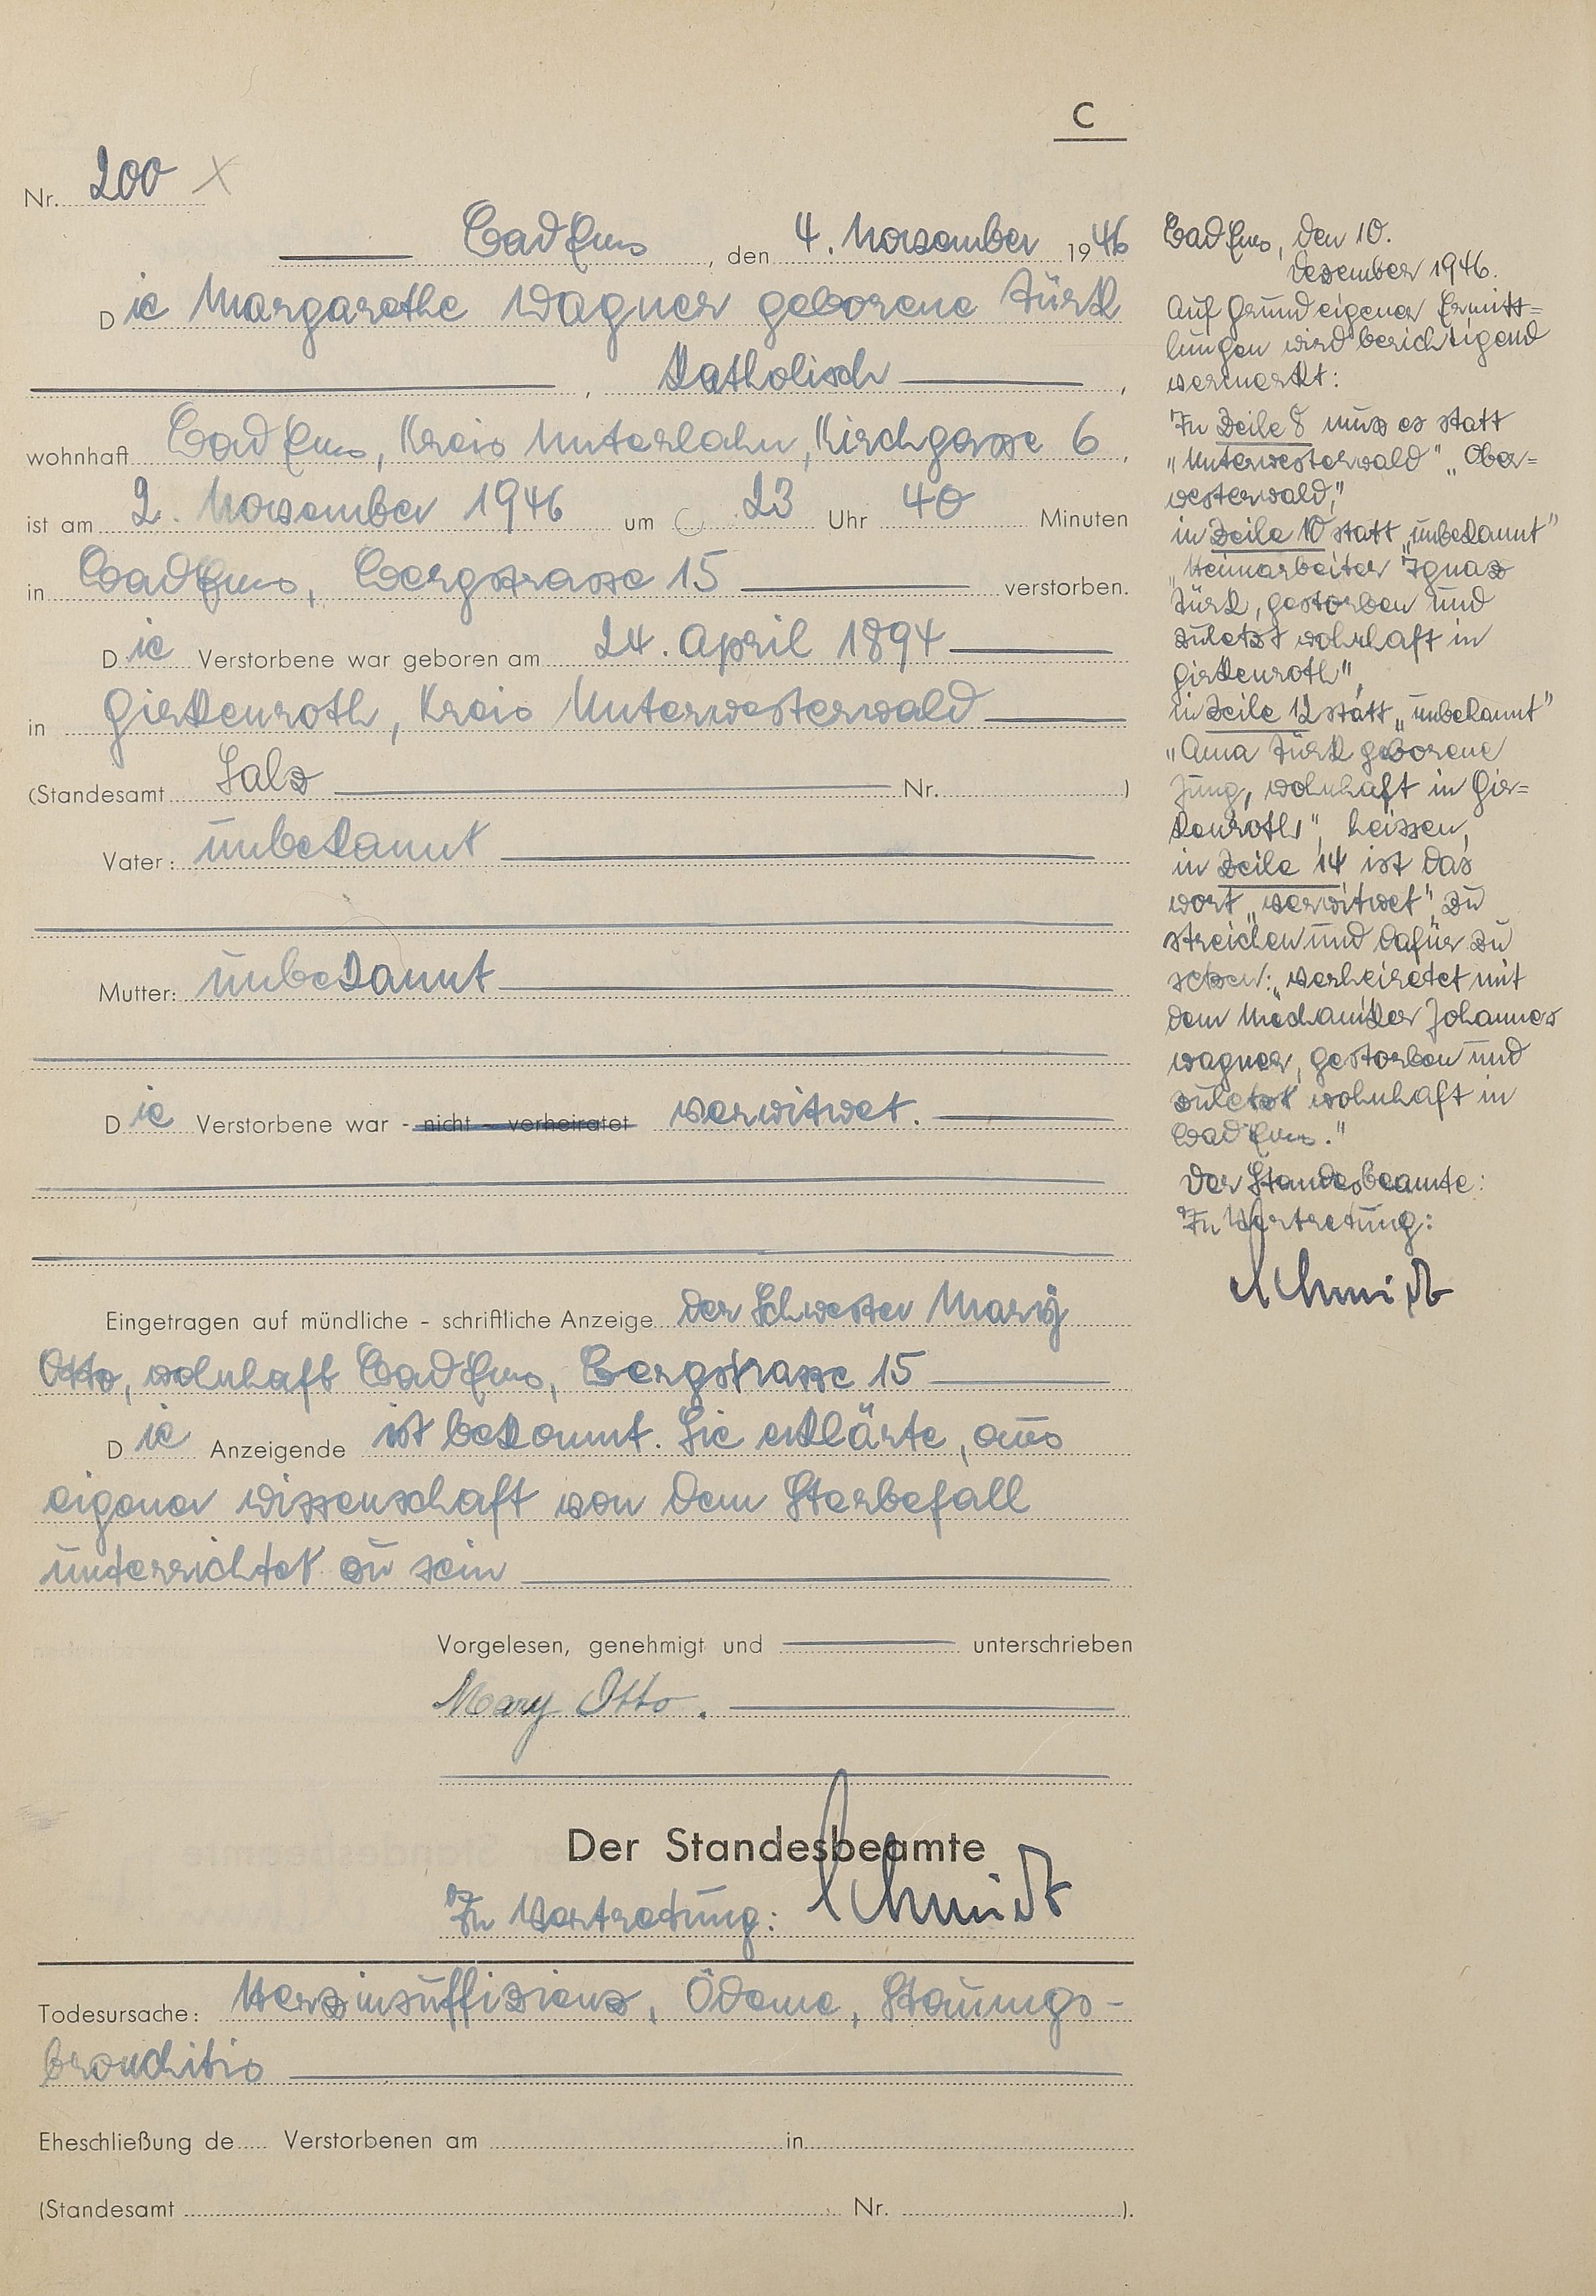 C
Nr. 200 x
Bad Ems, den 4. November 1946
Die Margarethe Wagner geborene Türk
, Katholisch ,
wohnhaft Bad Ems, Kreis Unterlahn, Kirchgasse 6,
ist am 2. November 1946 um 23 Uhr 40 Minuten
in Bad Ems, Bergstrasse 15 verstorben.
Die Verstorbene war geboren am 24. April 1894
in Girkenroth, Kreis Unterwesterwald
(Standesamt Salz Nr. )
Vater: unbekannt
Mutter: unbekannt
Die Verstorbene war - nicht - verheiratet verwitwet.
Eingetragen auf mündliche - schriftliche Anzeige der Schwester Mary
Otto, wohnhaft Bad Ems, Bergstrasse 15
Die Anzeigende ist bekannt. Sie erklärte, aus
eigener Wissenschaft von dem Sterbefall
unterrichtet zu sein
Vorgelesen, genehmigt und unterschrieben
Mary Otto.
Der Standesbeamte
In Vertretung: Schmidt
Todesursache: Herzinsuffizienz, Ödeme, Stauungs-
bronchitis
Eheschließung de Verstorbenen am in
(Standesamt Nr. ).
Bad Ems, den 10.
Dezember 1946.
Auf Grund eigener Ermitt=
lungen wird berichtigend
vermerkt:
In Zeile 8 muss es statt
„Unterwesterwald" „Ober=
westerwald",
in Zeile 10 statt „unbekannt"
„Heimarbeiter Ignaz
Türk, gestorben und
zuletzt wohnhaft in
Girkenroth",
in Zeile 12 statt „unbekannt"
„Anna Türk geborene
Jung, wohnhaft in Gir=
kenroth" heissen,
in Zeile 14 ist das
Wort „verwitwet" zu
streichen und dafür zu
setzen: „verheiratet mit
dem Mechaniker Johannes
Wagner, gestorben und
zuletzt wohnhaft in
Bad Ems."
Der Standesbeamte:
In Vertretung:
Schmidt